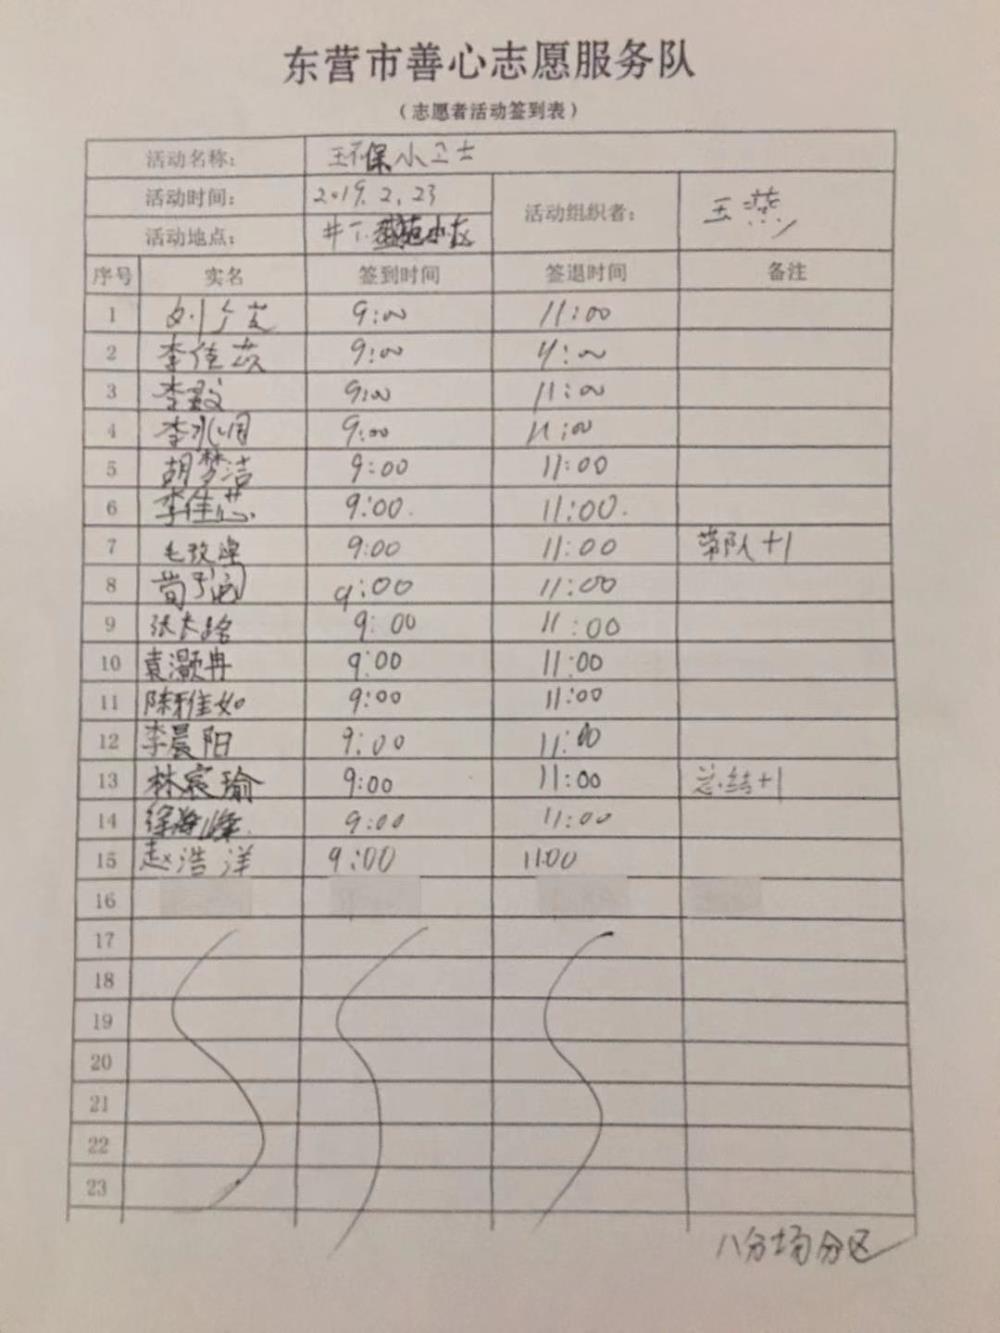 东营市善心志愿服务队
（志愿者活动签到表）
活动名称： 环保小卫士
活动时间： 2019.2.23 活动组织者： 王燕
活动地点：
序号 实名 签到时间 签退时间 备注
1 9:00 11:00
2 李佳 9:00 11:00
3 李 9:00 11:00
4 李 9:00 11:00
5 胡梦洁 9:00 11:00
6 李佳蕊 9:00. 11:00.
7 毛玫 9:00 11:00 带队+1
8 9:00 11:00
9 张 9:00 11:00
10 袁灏冉 9:00 11:00
11 陈雅如 9:00 11:00
12 李晨阳 9:00 11:00
13 林宸瑜 9:00 11:00 总结+1
14 徐 9:00 11:00
15 赵浩洋 9:00 11:00
16
17
18
19
20
21
22
23
八分场分区